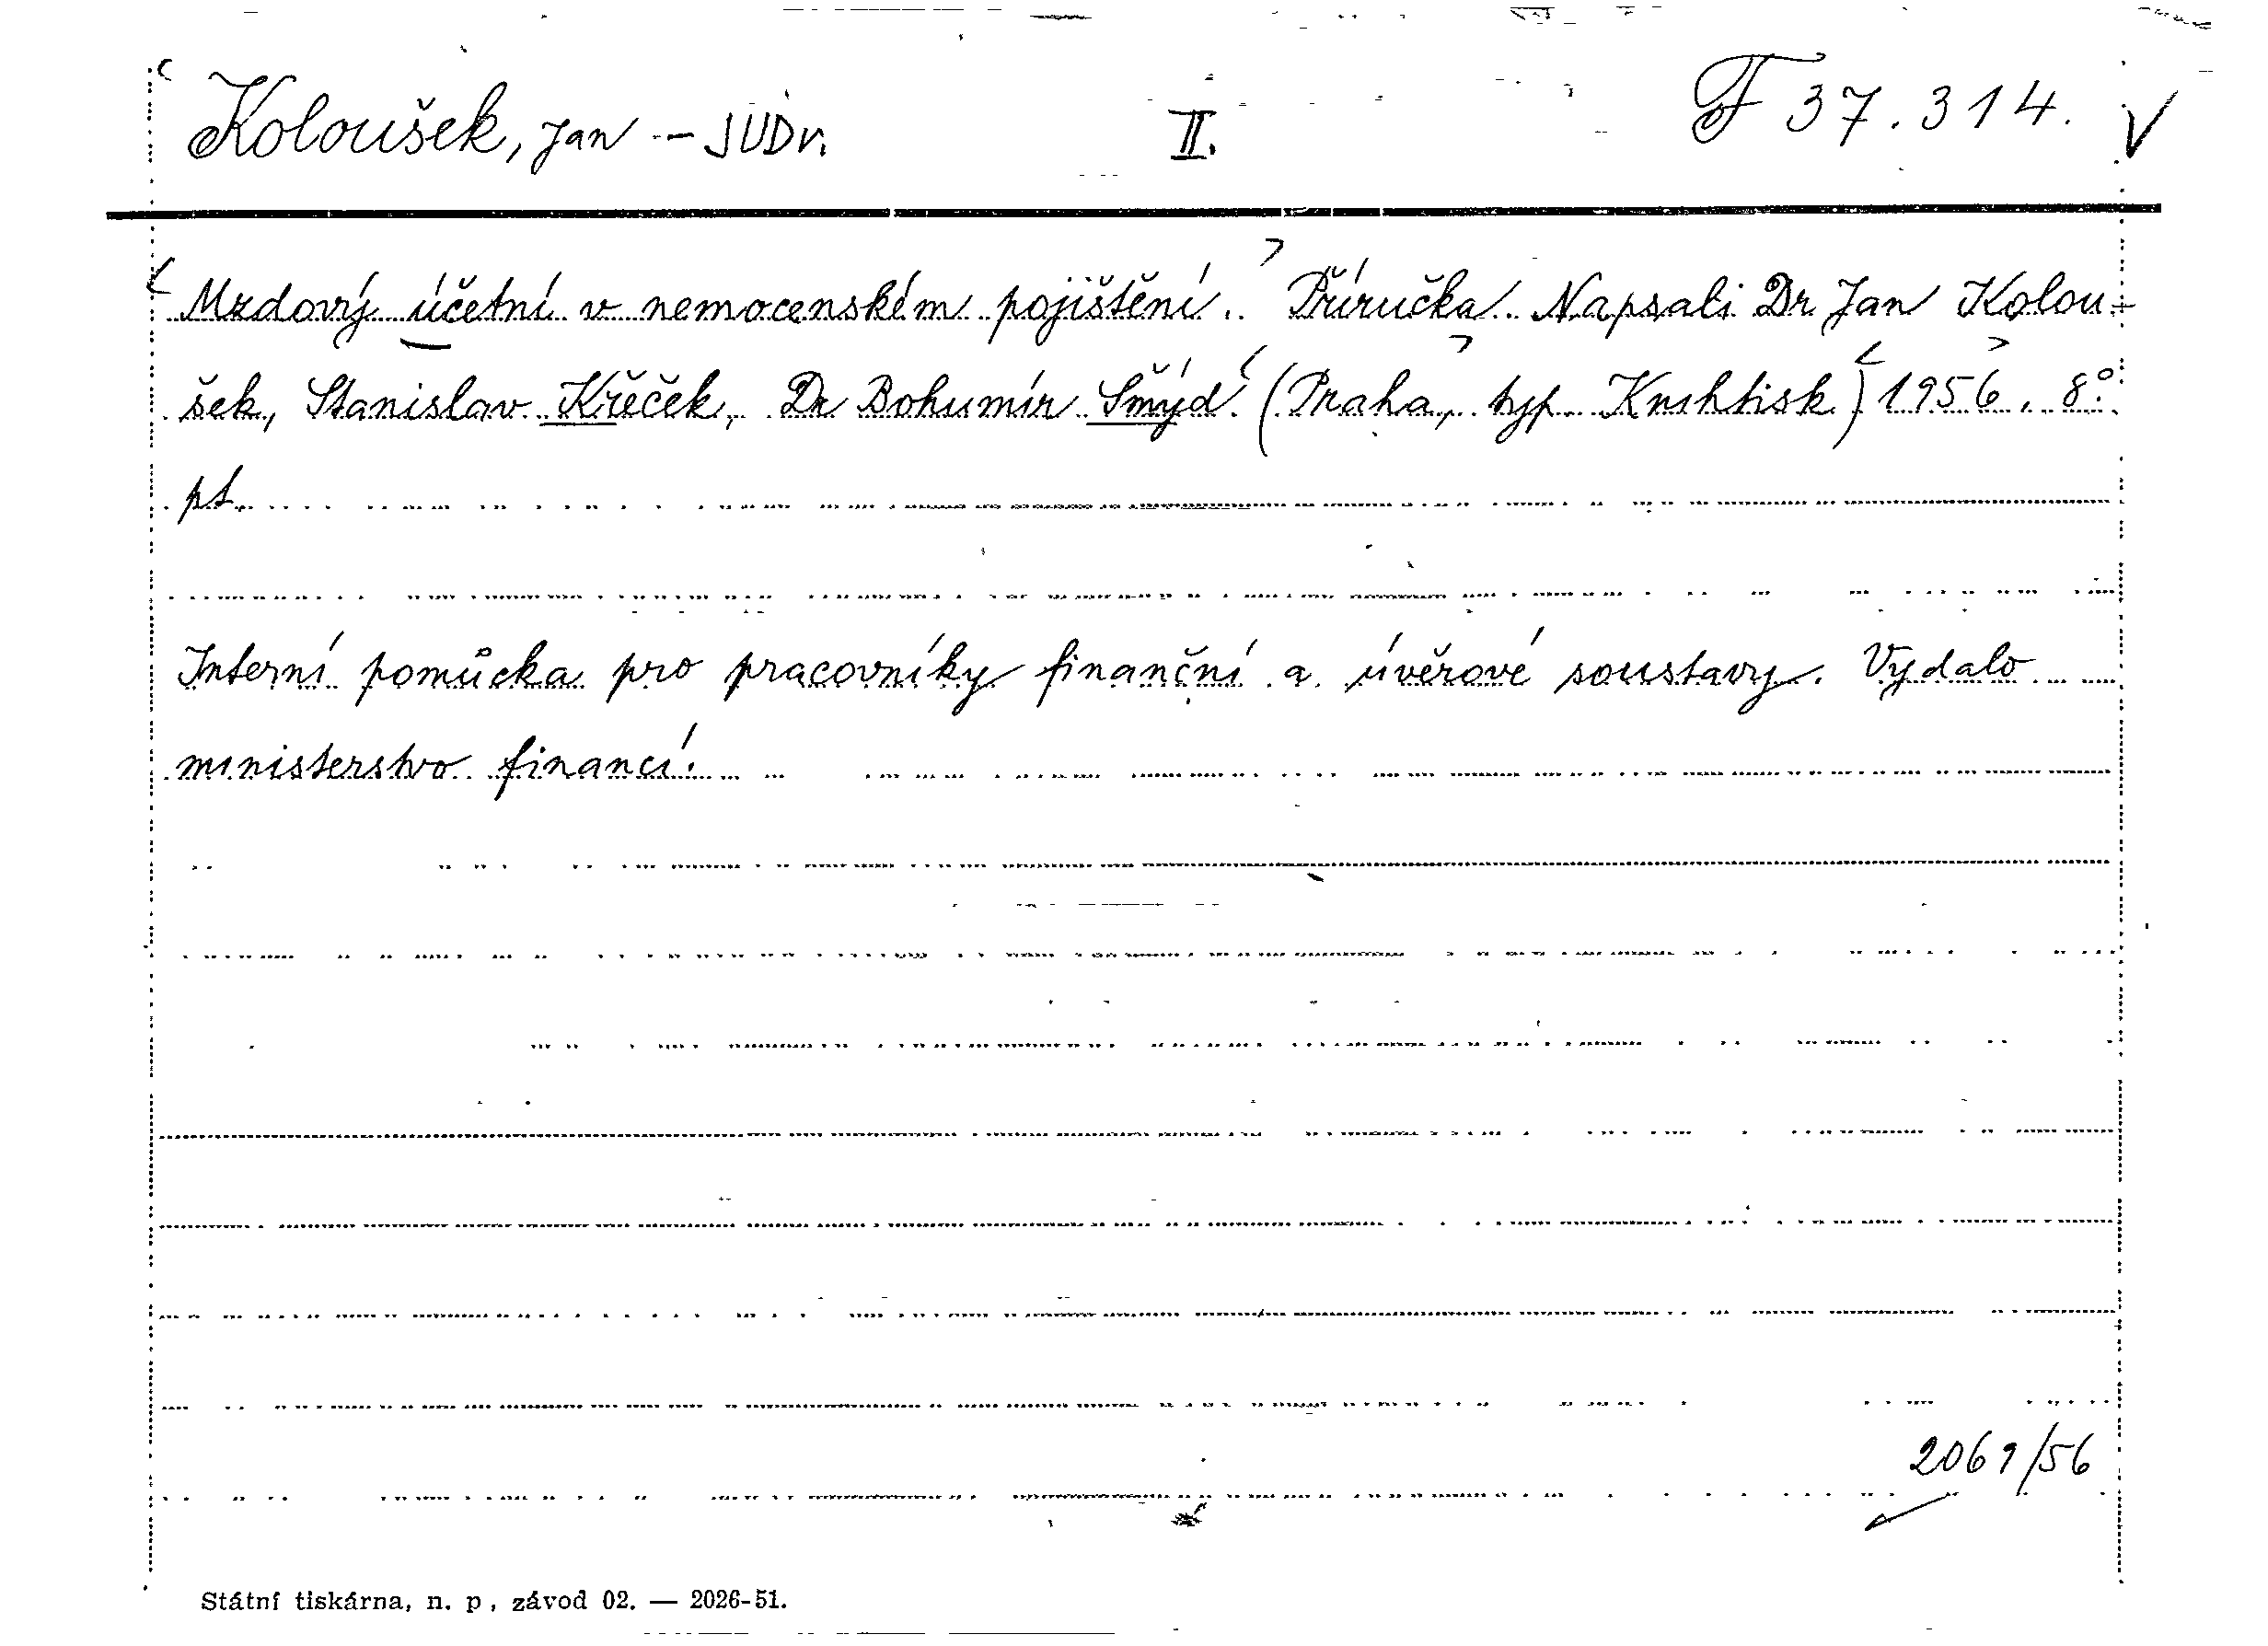 Koloušek, Jan - JUDr. II. F 37.314. V
Mzdový účetní v nemocenském pojištění. Příručka. Napsali Dr Jan Kolou-
šek, Stanislav Křeček, Dr Bohumír Šmýd. (Praha, typ. Knihtisk) 1956. 8°.
pt.
Interní pomůcka pro pracovníky finanční a úvěrové soustavy. Vydalo
ministerstvo financí.
2069/56
Státní tiskárna, n. p., závod 02. — 2026-51.